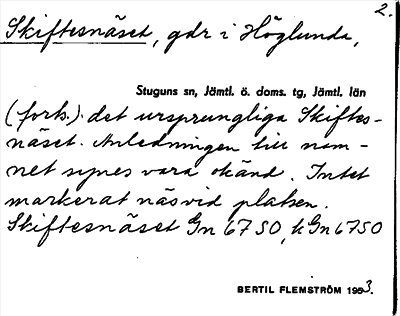 2.
Skiftesnäset, gdr i Höglunda,
Stuguns sn, Jämtl. ö. doms. tg, Jämtl. län
(forts.). det ursprungliga Skiftes-
näset. Anledningen till nam-
net synes vara okänd. Intet
markerat näs vid platsen.
Skiftesnäset Gn 6750, k Gn 6750
BERTIL FLEMSTRÖM 1953.